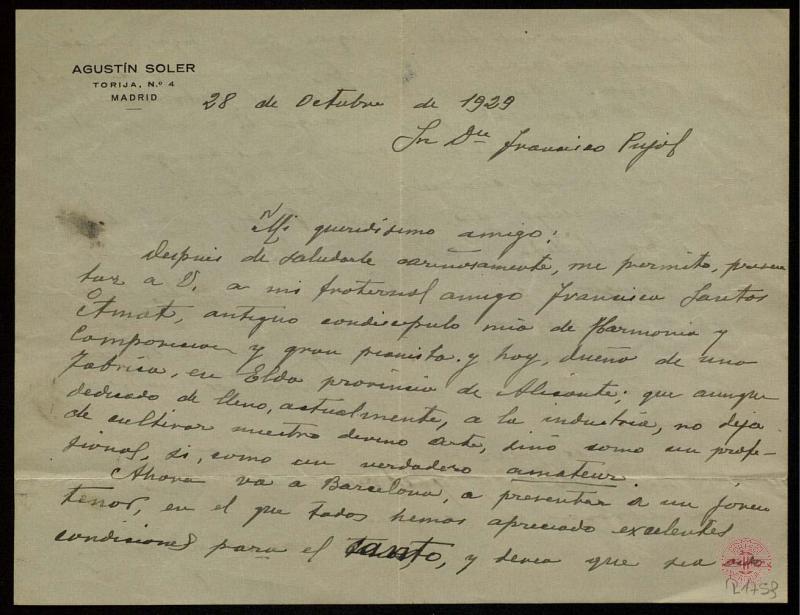 AGUSTÍN SOLER
TORIJA, N.º 4
MADRID
28 de Octubre de 1929
Sr Dn Francisco Pujol
Mi queridísimo amigo:
Despues de saludarle cariñosamente, me permito, presen
tar a V. a mi fraternal amigo Francisco Santos
Amat, antiguo condiscipulo mio de Harmonia y
Composicion y gran pianista. y hoy, dueño de una
Fabrica, en Elda provincia de Alicante; que aunque
dedicado de lleno, actualmente, a la industria, no deja
de cultivar nuestro divino arte, sino como un profe-
sional, si, como un verdadero amateur.
Ahora va a Barcelona, a presentar a un joven
tenor, en el que todos hemos apreciado excelentes
condiciones para el canto, y desea que sea
L1753